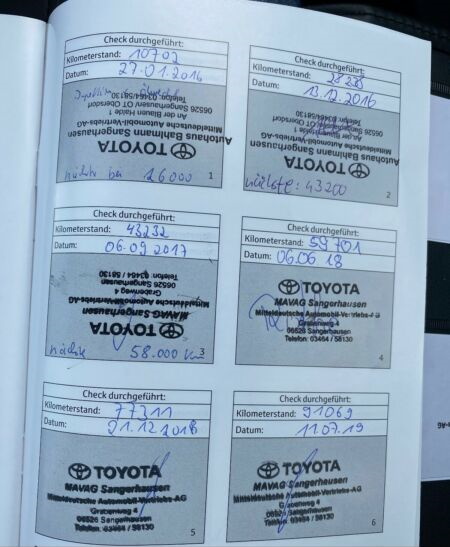 Check durchgeführt:
Kilometerstand: 10702
Datum: 27.01.2016
Autohaus Bahlmann Sangerhausen
Mitteldeutsche Automobil-Vertriebs-AG
An der Blauen Heide 1
06526 Sangerhausen/ OT Obersdorf
Telefon: 03464/58130
TOYOTA
nächste bei 26000
1
Check durchgeführt:
Kilometerstand: 28285
Datum: 13.12.2016
Autohaus Bahlmann Sangerhausen
Mitteldeutsche Automobil-Vertriebs-AG
An der Blauen Heide 1
06526 Sangerhausen/ OT Obersdorf
Telefon: 03464/58130
TOYOTA
nächste: 43200
2
Check durchgeführt:
Kilometerstand: 43232
Datum: 06.09.2017
TOYOTA
MAVAG Sangerhausen
Mitteldeutsche Automobil-Vertriebs-AG
Grabenweg 4
06526 Sangerhausen
Telefon: 03464 / 58130
nächste 58.000 km
3
Check durchgeführt:
Kilometerstand: 59701
Datum: 06.06.18
TOYOTA
MAVAG Sangerhausen
Mitteldeutsche Automobil-Vertriebs-AG
Grabenweg 4
06526 Sangerhausen
Telefon: 03464 / 58130
4
Check durchgeführt:
Kilometerstand: 77211
Datum: 21.12.2018
TOYOTA
MAVAG Sangerhausen
Mitteldeutsche Automobil-Vertriebs-AG
Grabenweg 4
06526 Sangerhausen
Telefon: 03464 / 58130
5
Check durchgeführt:
Kilometerstand: 91069
Datum: 11.07.19
TOYOTA
MAVAG Sangerhausen
Mitteldeutsche Automobil-Vertriebs-AG
Grabenweg 4
06526 Sangerhausen
Telefon: 03464 / 58130
6